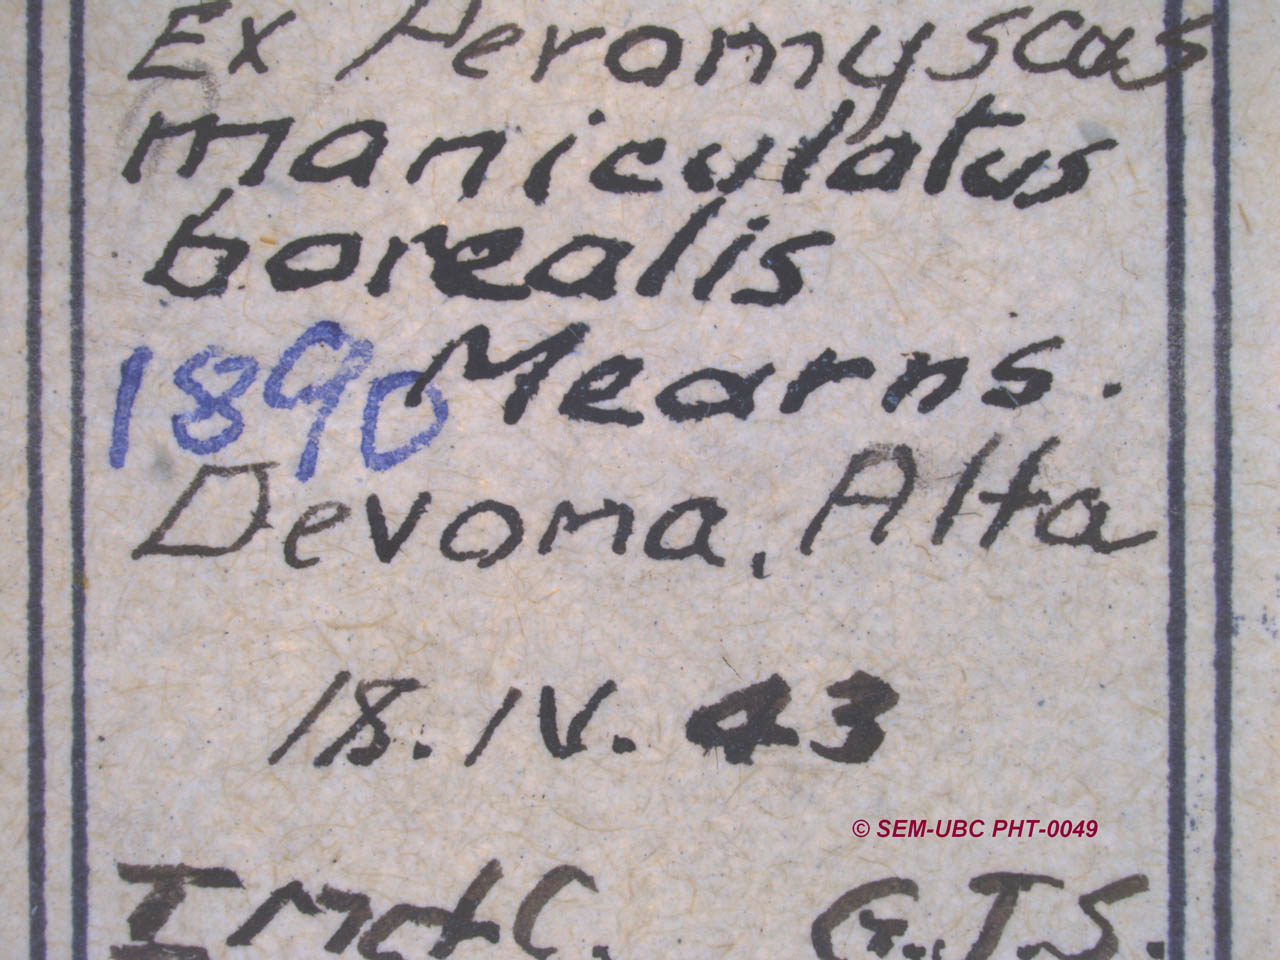 Ex Peromyscus
maniculatus
borealis
1890 Mearns.
Devona, Alta
18.IV.43
© SEM-UBC PHT-0049
G.J.S.